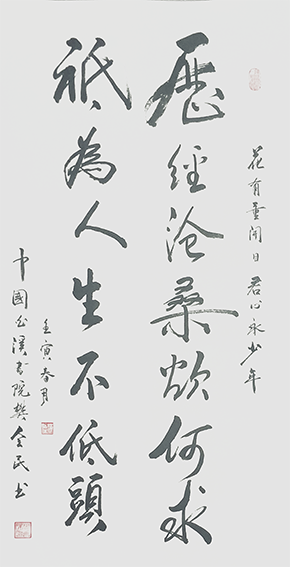 花有重開日 君心永少年
歷經沧桑欲何求
祇為人生不低頭
壬寅春月
中國書院樊金民书